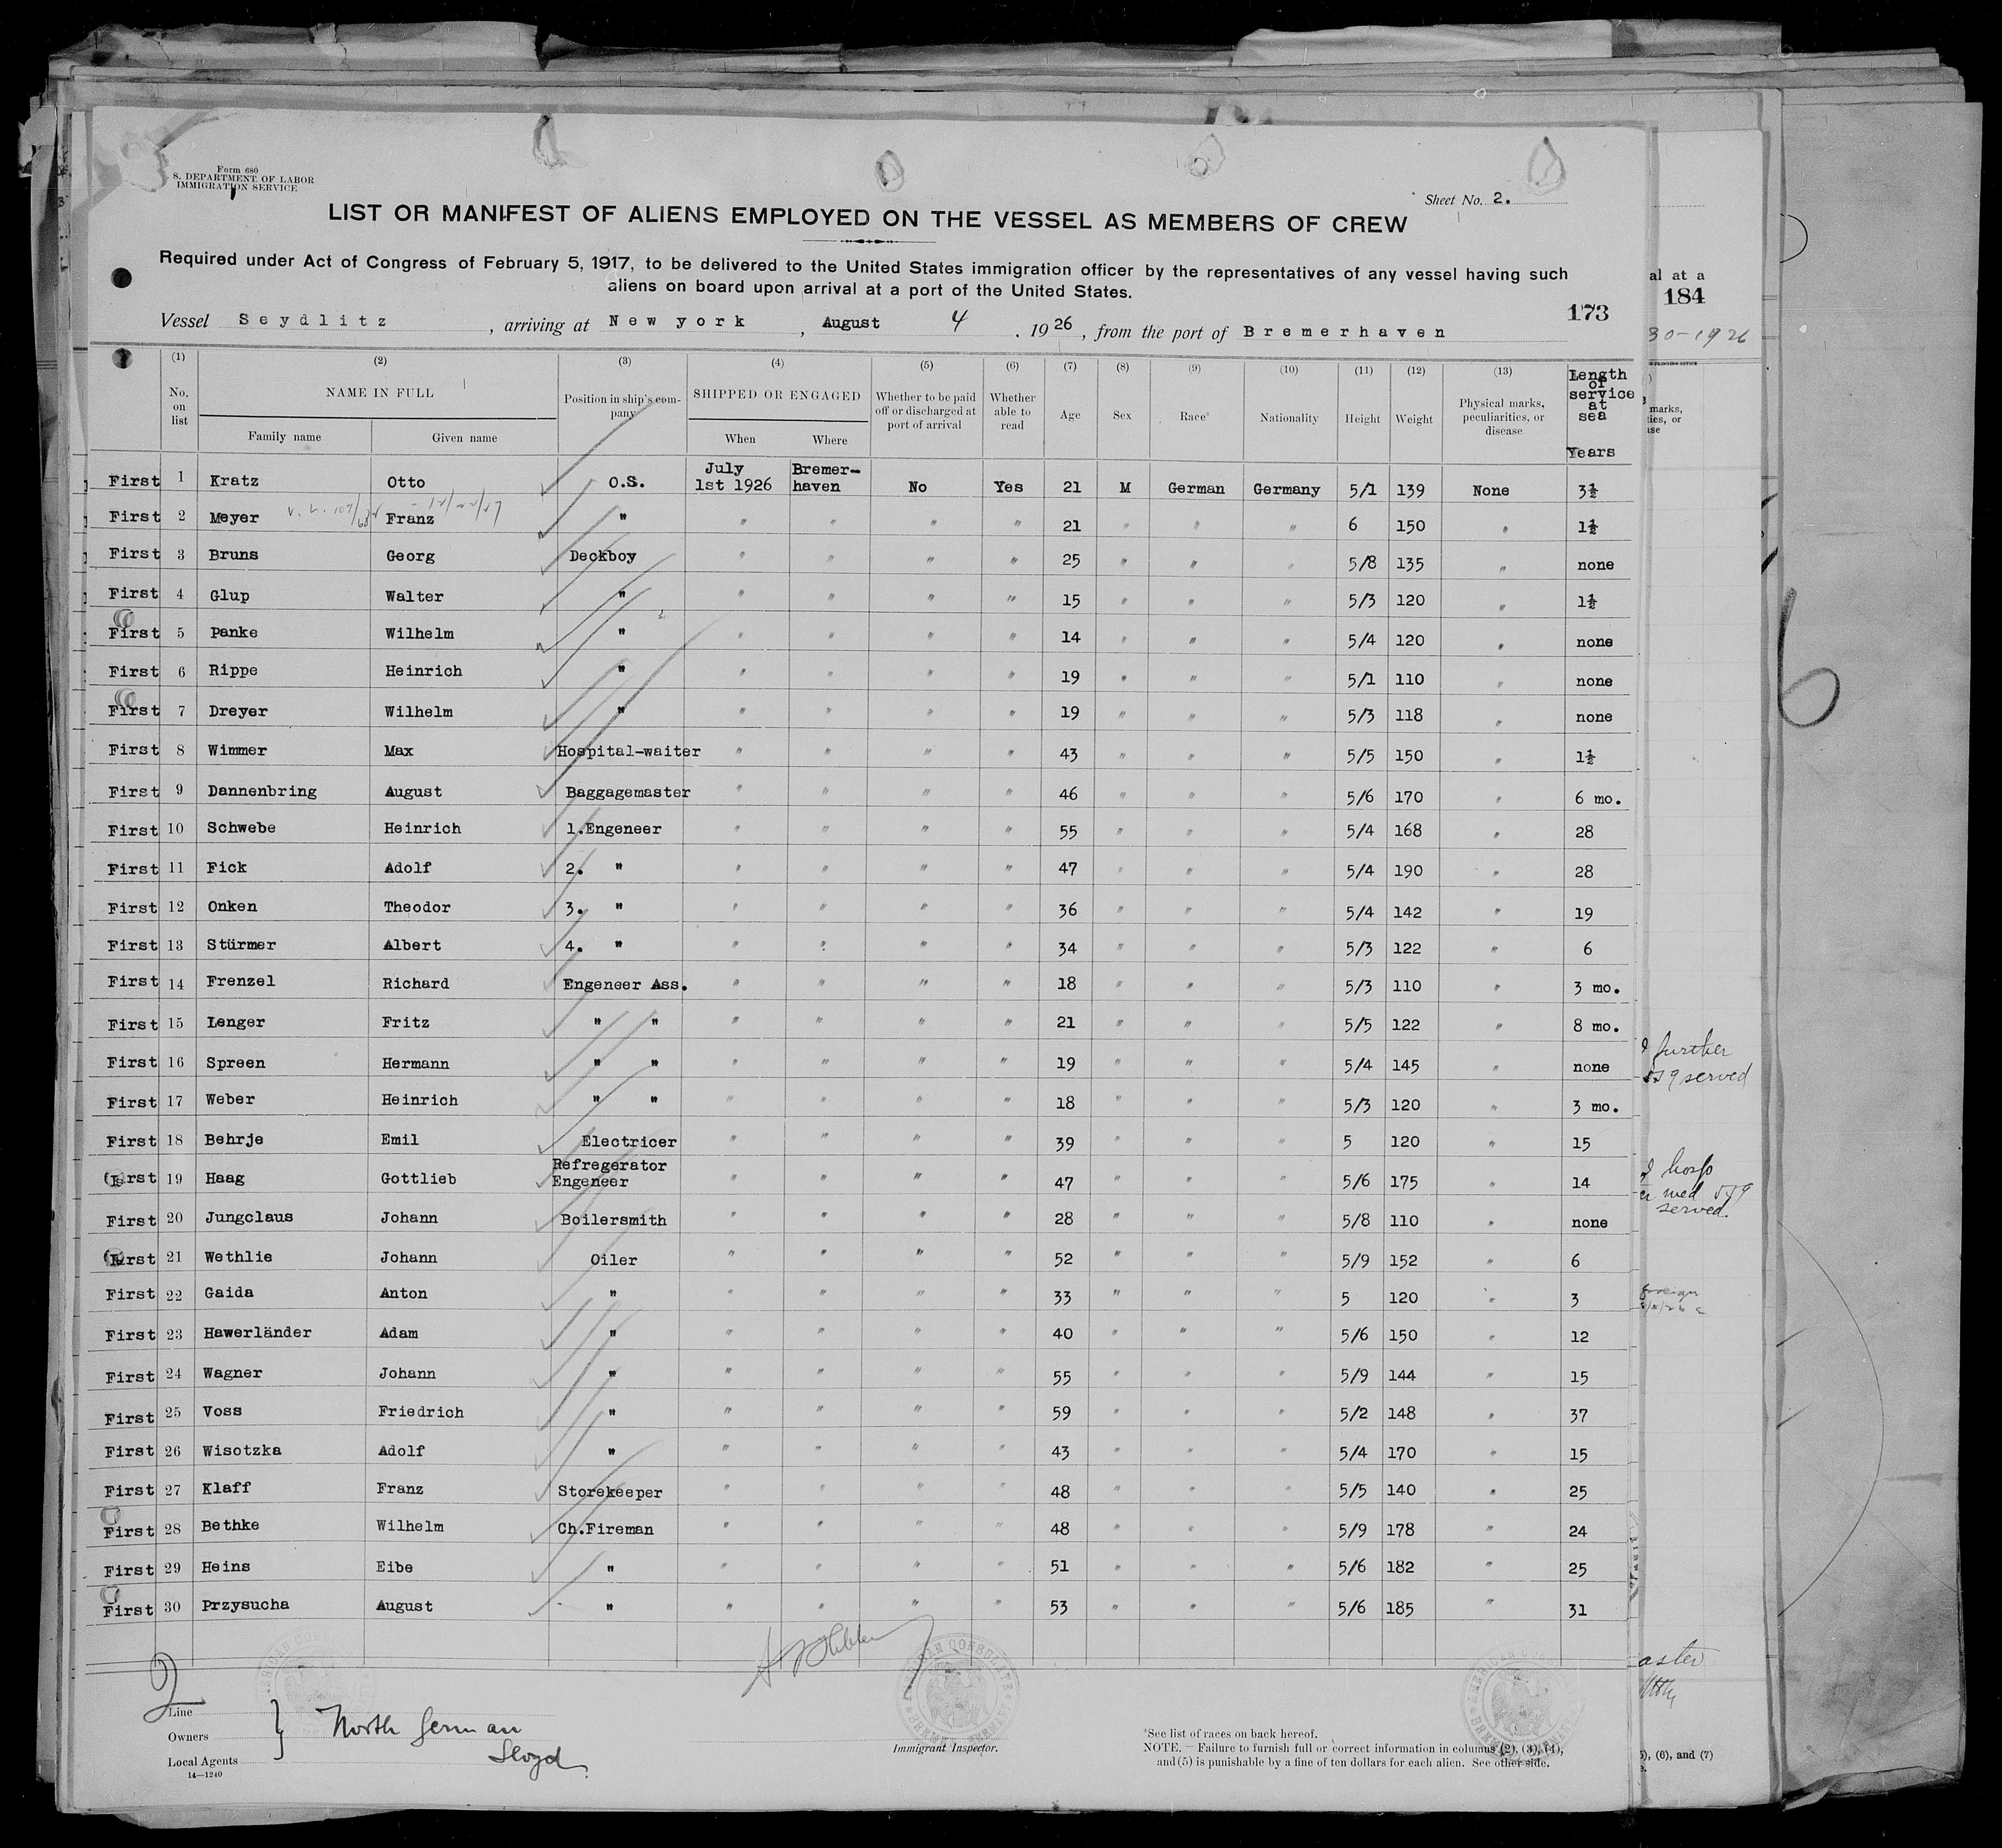 Form 680
S. DEPARTMENT OF LABOR
IMMIGRATION SERVICE
Sheet No. 2.
LIST OR MANIFEST OF ALIENS EMPLOYED ON THE VESSEL AS MEMBERS OF CREW
Required under Act of Congress of February 5, 1917, to be delivered to the United States immigration officer by the representatives of any vessel having such
aliens on board upon arrival at a port of the United States.
173
Vessel Seydlitz, arriving at New york, August 4. 1926, from the port of Bremerhaven
(1) (2) (3) (4) (5) (6) (7) (8) (9) (10) (11) (12) (13)
No. on list NAME IN FULL Family name Given name Position in ship's company SHIPPED OR ENGAGED When Where Whether to be paid off or discharged at port of arrival Whether able to read Age Sex Race* Nationality Height Weight Physical marks, peculiarities, or disease Length of service at sea Years
First 1 Kratz Otto O.S. July 1st 1926 Bremer-haven No Yes 21 M German Germany 5/1 139 None 3½
First 2 Meyer Franz " " " " " 21 " " " 6 150 " 1½
First 3 Bruns Georg Deckboy " " " " 25 " " " 5/8 135 " none
First 4 Glup Walter " " " " " 15 " " " 5/3 120 " 1½
First 5 Panke Wilhelm " " " " " 14 " " " 5/4 120 " none
First 6 Rippe Heinrich " " " " " 19 " " " 5/1 110 " none
First 7 Dreyer Wilhelm " " " " " 19 " " " 5/3 118 " none
First 8 Wimmer Max Hospital-waiter " " " " 43 " " " 5/5 150 " 1½
First 9 Dannenbring August Baggagemaster " " " " 46 " " " 5/6 170 " 6 mo.
First 10 Schwebe Heinrich 1.Engeneer " " " " 55 " " " 5/4 168 " 28
First 11 Fick Adolf 2. " " " " " 47 " " " 5/4 190 " 28
First 12 Onken Theodor 3. " " " " " 36 " " " 5/4 142 " 19
First 13 Stürmer Albert 4. " " " " " 34 " " " 5/3 122 " 6
First 14 Frenzel Richard Engeneer Ass. " " " " 18 " " " 5/3 110 " 3 mo.
First 15 Lenger Fritz " " " " " " 21 " " " 5/5 122 " 8 mo.
First 16 Spreen Hermann " " " " " " 19 " " " 5/4 145 " none
First 17 Weber Heinrich " " " " " " 18 " " " 5/3 120 " 3 mo.
First 18 Behrje Emil Electricer " " " " 39 " " " 5 120 " 15
First 19 Haag Gottlieb Refregerator Engeneer " " " " 47 " " " 5/6 175 " 14
First 20 Jungclaus Johann Boilersmith " " " " 28 " " " 5/8 110 " none
First 21 Wethlie Johann Oiler " " " " 52 " " " 5/9 152 " 6
First 22 Gaida Anton " " " " " 33 " " " 5 120 " 3
First 23 Hawerländer Adam " " " " " 40 " " " 5/6 150 " 12
First 24 Wagner Johann " " " " " 55 " " " 5/9 144 " 15
First 25 Voss Friedrich " " " " " 59 " " " 5/2 148 " 37
First 26 Wisotzka Adolf " " " " " 43 " " " 5/4 170 " 15
First 27 Klaff Franz Storekeeper " " " " 48 " " " 5/5 140 " 25
First 28 Bethke Wilhelm Ch.Fireman " " " " 48 " " " 5/9 178 " 24
First 29 Heins Eibe " " " " " 51 " " " 5/6 182 " 25
First 30 Przysucha August " " " " " 53 " " " 5/6 185 " 31
2
Line
Owners
Local Agents
North German
Lloyd
14—1240
Immigrant Inspector.
*See list of races on back hereof.
NOTE.—Failure to furnish full or correct information in columns (2), (3), (4),
and (5) is punishable by a fine of ten dollars for each alien. See other side.
al at a
184
30-1926
marks,
ies, or
ase
further
served
hosp
med
served
foreign
aster
5), (6), and (7)
6